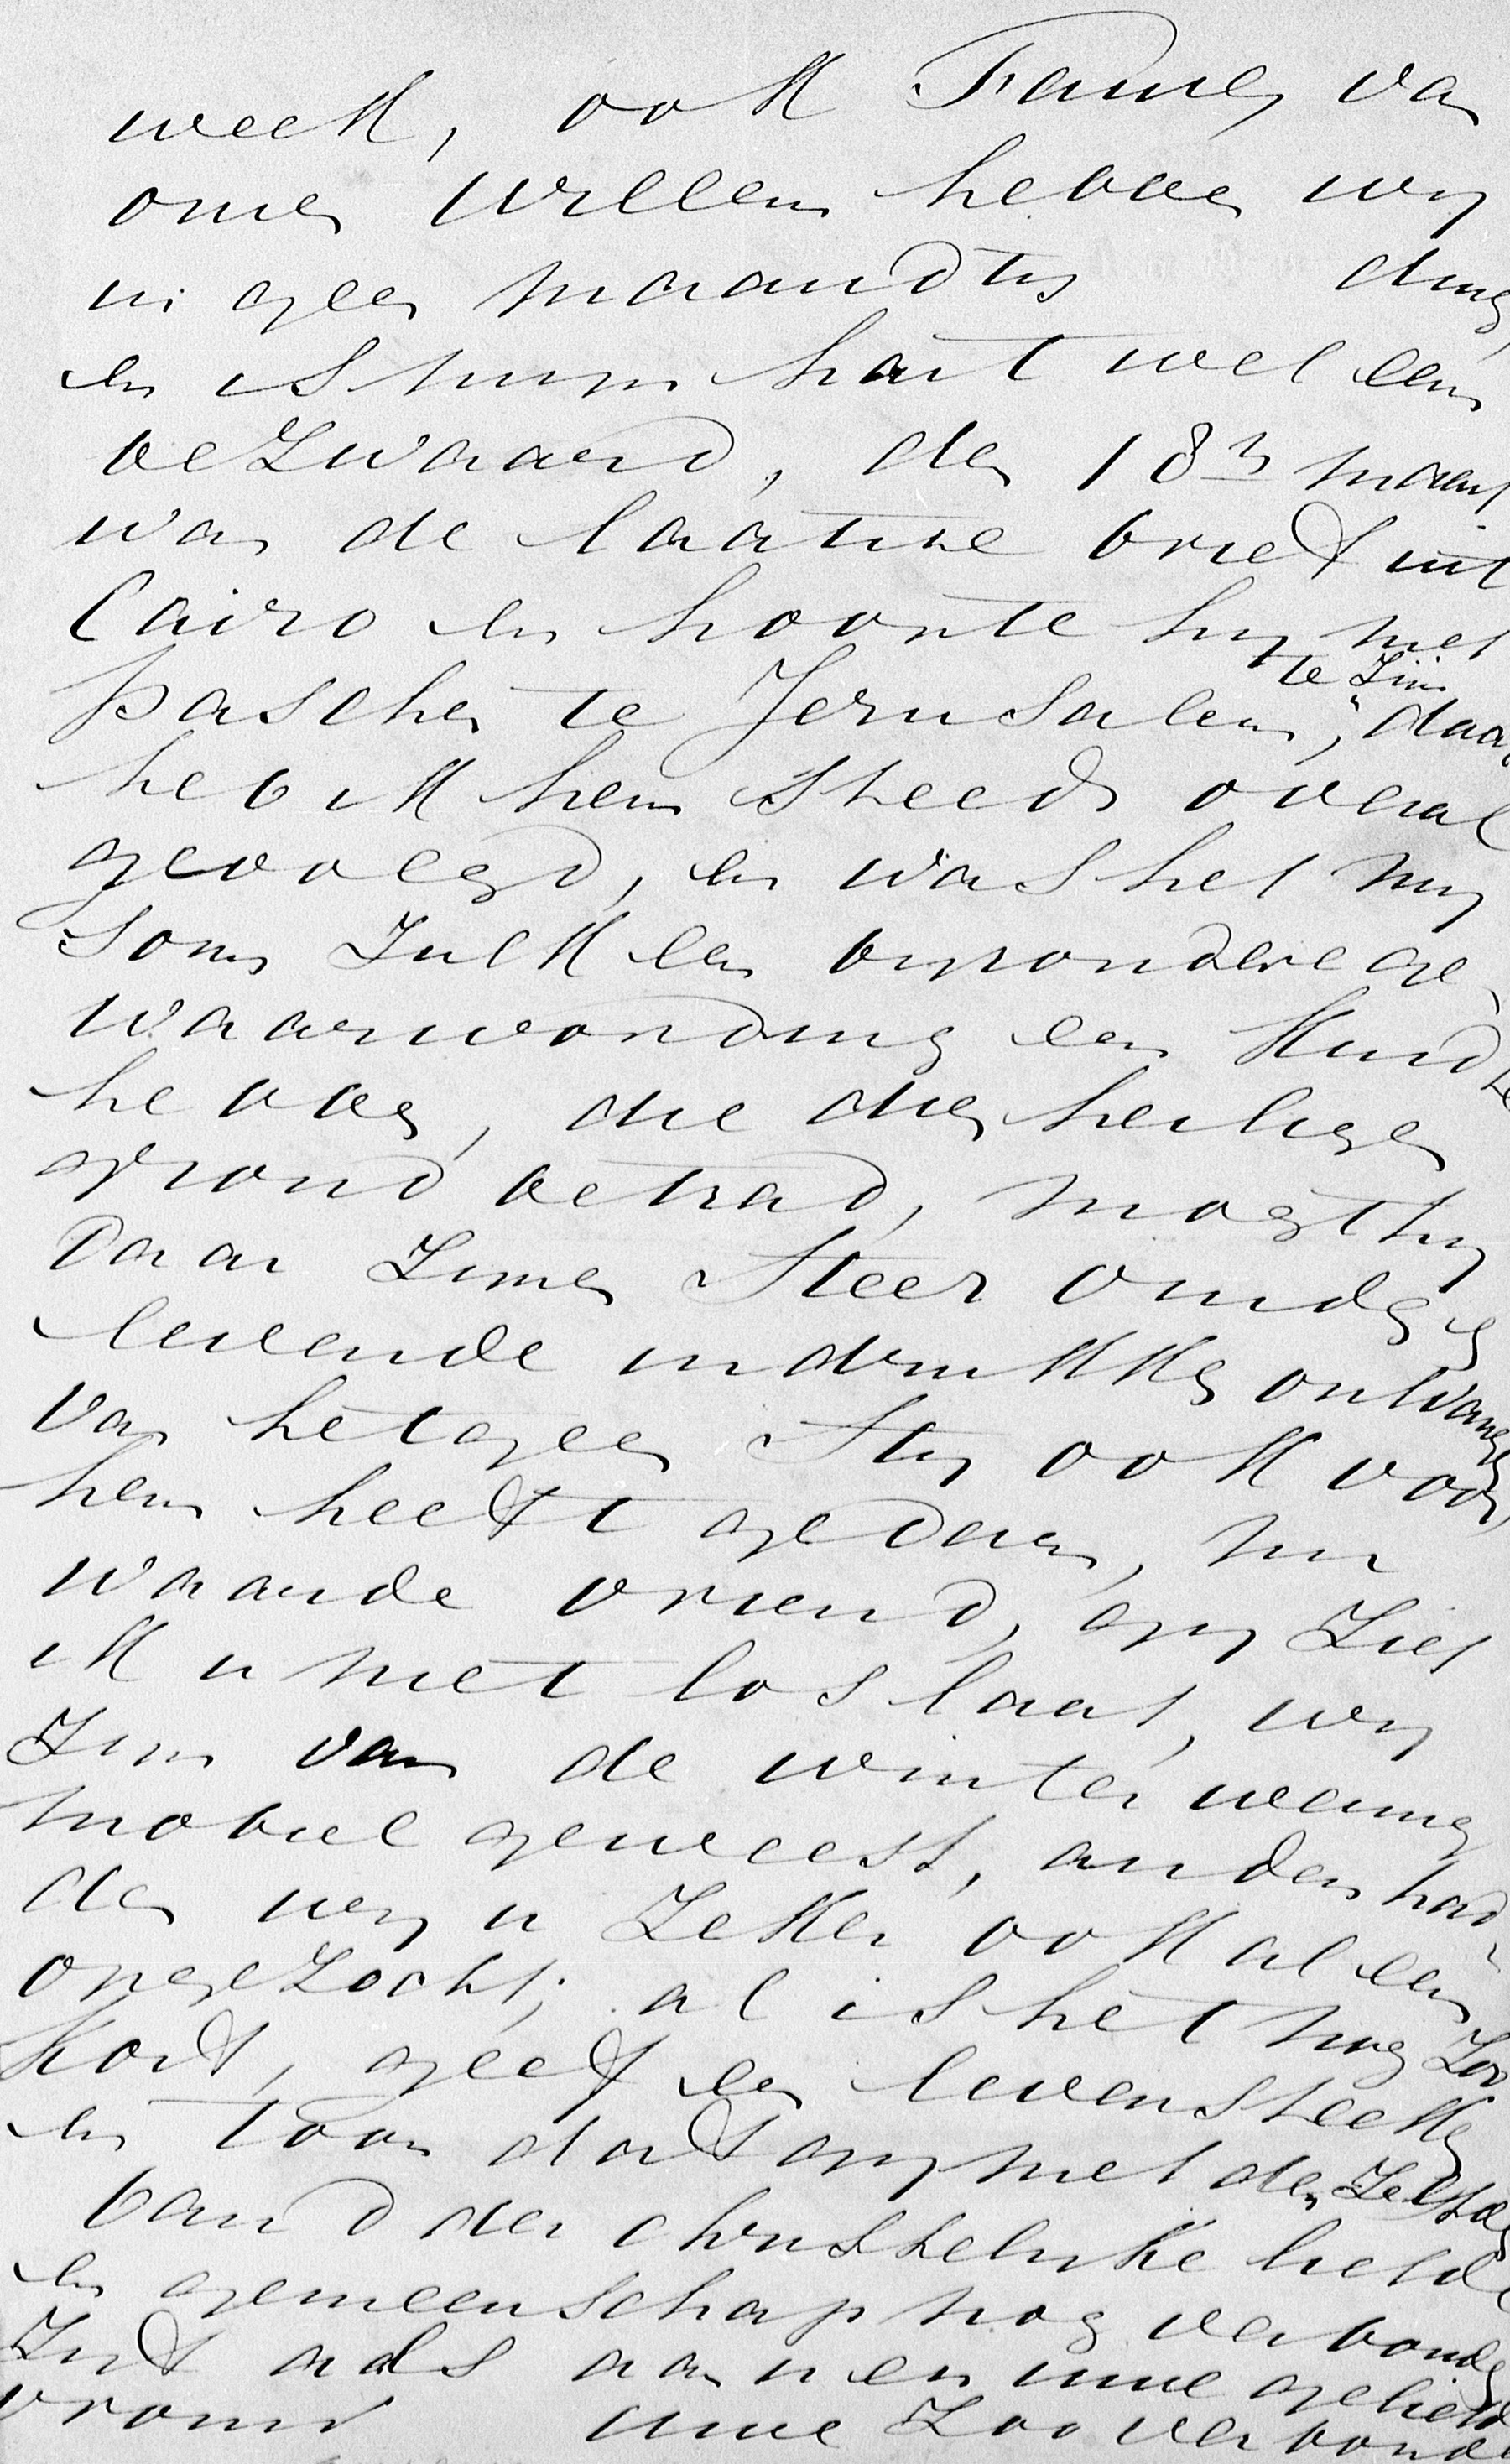 week, ook Tames van
onzen Willem hebben wy
in geen maand tijding
en is myn hart wel eens
bezwaard, den 18n maart
was de laatste brief uit
Cairo en hoopte hy met
paschen te Jerusalem te zijn, daar
heb ik hem steeds overal
gevolgd, en was het my
soms zulk een byzondere ge-
waarwording een kind te
hebben, die dien heiligen
grond betrad, mogt hy
Daar Zynen Heer vinden en
levende indrukken ontvangen
van hetgeen Hy ook voor
hem heeft gedaan, nu
waarde vriend, gy ziet
ik u niet los laat, wy
zyn van de winter weinig
mobiel geweest, anders had-
den wy u zeker ook al eens
opgezocht; al is het nog zoo
kort, geef een levensteeken
en toon dat gy met den zelfden
band der christelyke liefde
en gemeenschap nog verbonden
zyt als aan en uwe geliefde
vrouw uwe zoo verbonden